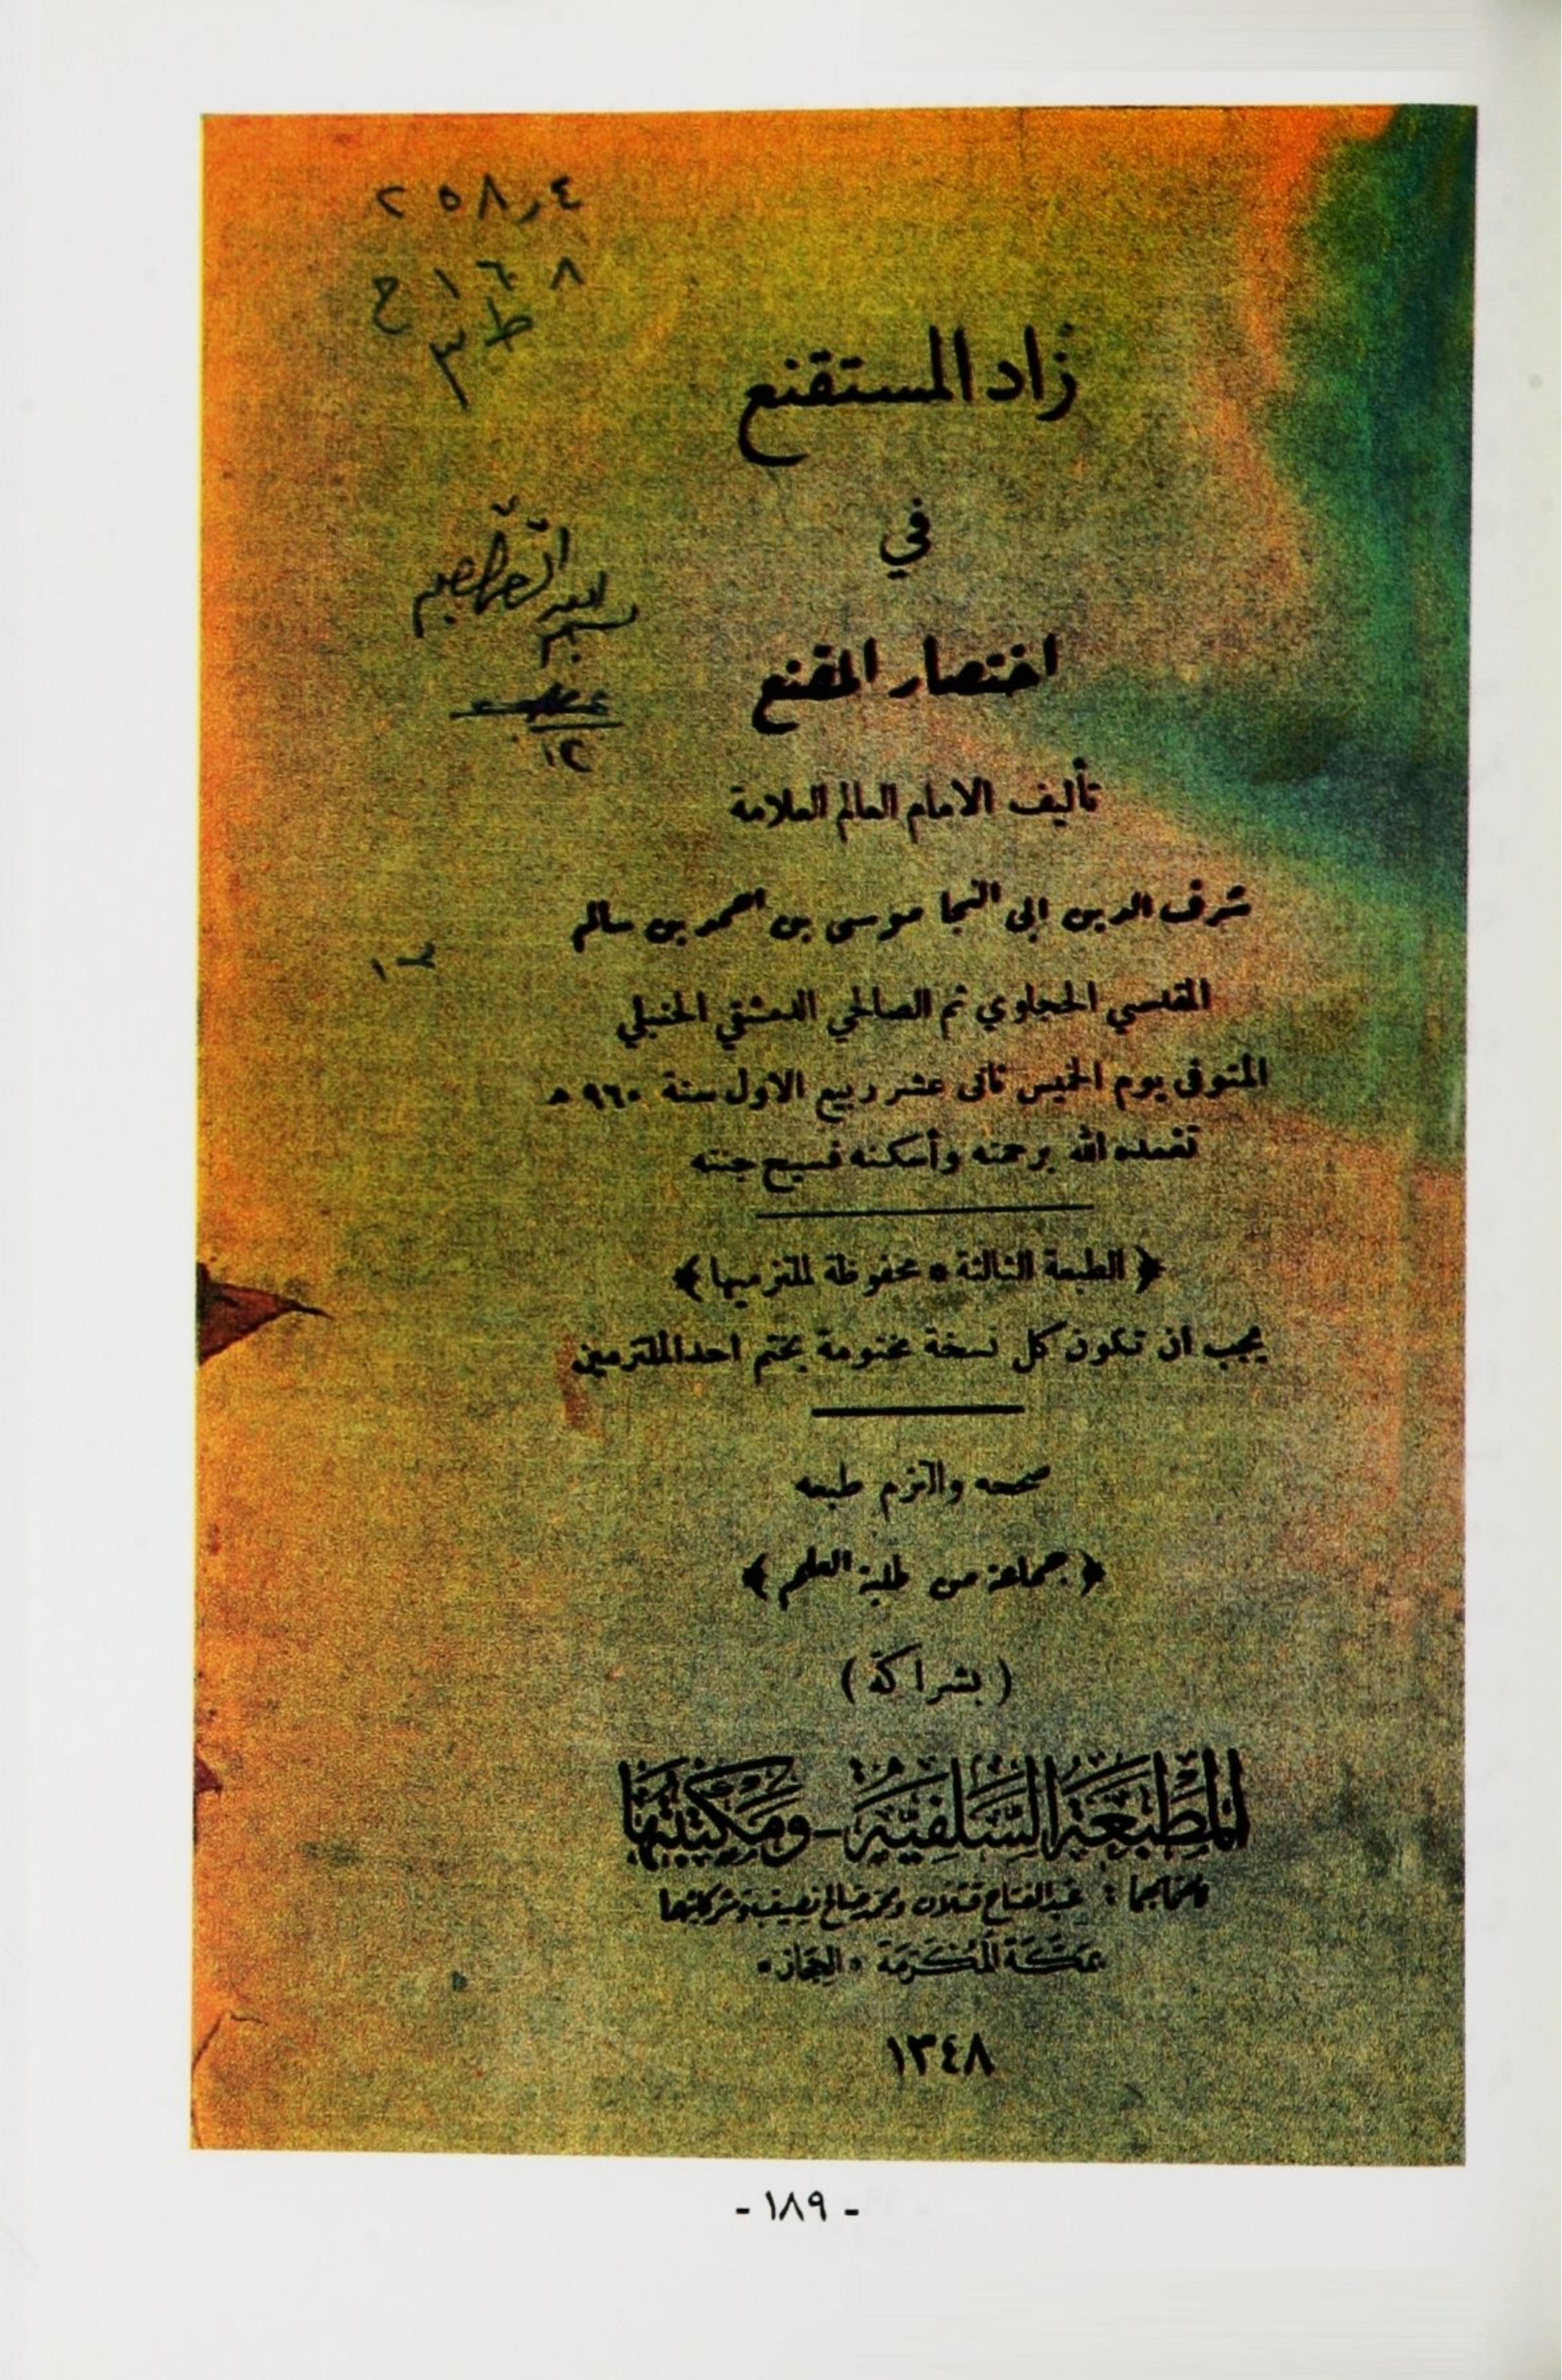 ٢٥٨٫٤
ح ١٦٨
ط ٣
زاد المستقنع
في
اختصار المقنع
تأليف الامام العالم العلامة
شرف الدين ابى النجا موسى بن احمد بن سالم
المقدسي الحجاوي ثم الصالحي الدمشقي الحنبلي
المتوفى يوم الخميس ثانى عشر ربيع الاول سنة ٩٦٠ ه
تغمده الله برحمته وأسكنه فسيح جنته
﴿ الطبعة الثالثة * محفوظة لملتزميها ﴾
يجب ان تكون كل نسخة مختومة بختم احد الملتزمين
صححه والتزم طبعه
﴿ جماعة من طلبة العلم ﴾
( بشراكة )
المَطبَعَة السَّلفيَّة - ومَكتبتها
لصَاحبها : عبد الفتاح قتلان ومحمد صالح نصيف وشركائهما
بمَكَّة المُكَرَّمَة * الحِجَاز *
١٣٤٨
- ١٨٩ -